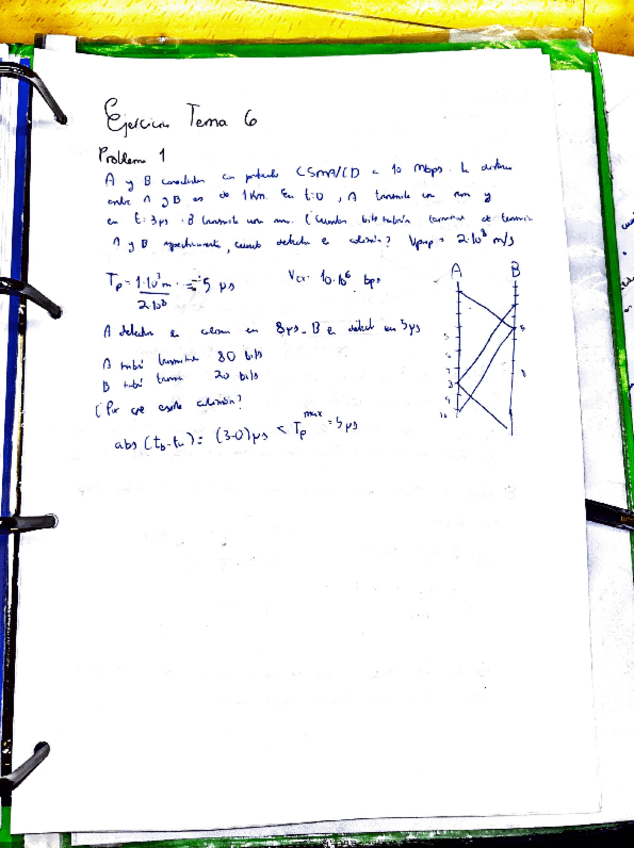 Ejercicios Tema 6
Problema 1
A y B conectados con protocolo CSMA/CD a 10 Mbps. La distancia
entre A y B es de 1 Km. En t=0, A transmite una trama y
en t=3μs B transmite una trama. ¿Cuantos bits habrán terminado de transmitir
A y B respectivamente, cuando detectan la colisión? Vprop = 2·10⁸ m/s
Tp = 1·10³ m / 2·10⁸ = 5 μs Vtx: 10·10⁶ bps
A B
A detecta la colisión en 8μs. B la detecta en 5μs
A habrá transmitido 80 bits
B habrá transmitido 20 bits
¿Por qué existe colisión?
abs (tb-ta) = (3-0)μs < Tp max = 5μs
5
8
8
9
10